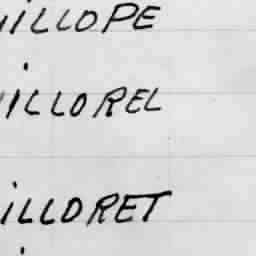 illOPE
illOREL
illORET